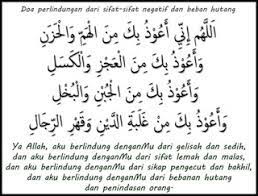 Doa perlindungan dari sifat-sifat negatif dan beban hutang
اَللَّهُمَّ إِنِّي أَعُوْذُ بِكَ مِنَ الْهَمِّ وَالْحَزَنِ
وَأَعُوْذُ بِكَ مِنَ الْعَجْزِ وَالْكَسَلِ
وَأَعُوْذُ بِكَ مِنَ الْجُبْنِ وَالْبُخْلِ
وَأَعُوْذُ بِكَ مِنْ غَلَبَةِ الدَّيْنِ وَقَهْرِ الرِّجَالِ
Ya Allah, aku berlindung denganMu dari gelisah dan sedih,
dan aku berlindung denganMu dari sifat lemah dan malas,
dan aku berlindung denganMu dari sikap pengecut dan bakhil,
dan aku berlindung denganMu dari bebanan hutang
dan penindasan orang.